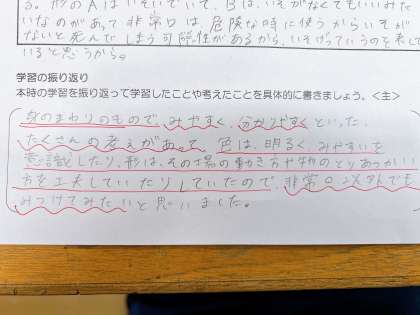 る。形のAはいそいでいて、Bは、いそがなくてもいいみた
いなのがあって、非常口は、危険な時に使うからいそが
ないと死んでしまう可能性があるから、いそげっていうのを表して
いると思うから。
学習の振り返り
本時の学習を振り返って学習したことや考えたことを具体的に書きましょう。<主>
身のまわりのもので、みやすく、分かりやすくといった、
たくさんの考えがあって、色は、明るく、みやすいを
意識したり、形は、その場の動き方や物のとりあつかい
方を工夫していたりしていたので、非常口以外でも
みつけてみたいと思いました。